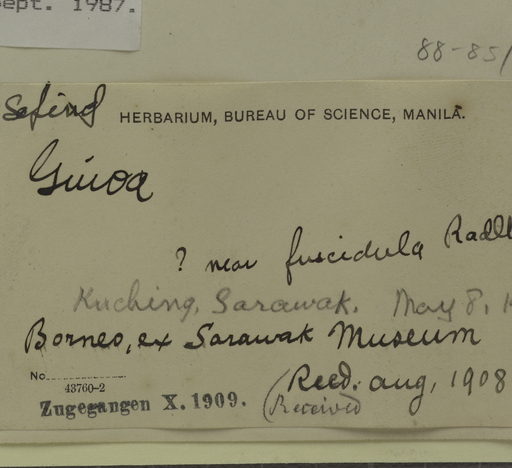 Sept. 1987.
88-85/
Sapind
HERBARIUM, BUREAU OF SCIENCE, MANILA.
Guioa
? near fuscidula Radlk
Kuching, Sarawak. May 8, 1
Borneo, ex Sarawak Museum
No.
43760-2
(Recd. Aug, 1908
Zugegangen X. 1909.
(Received